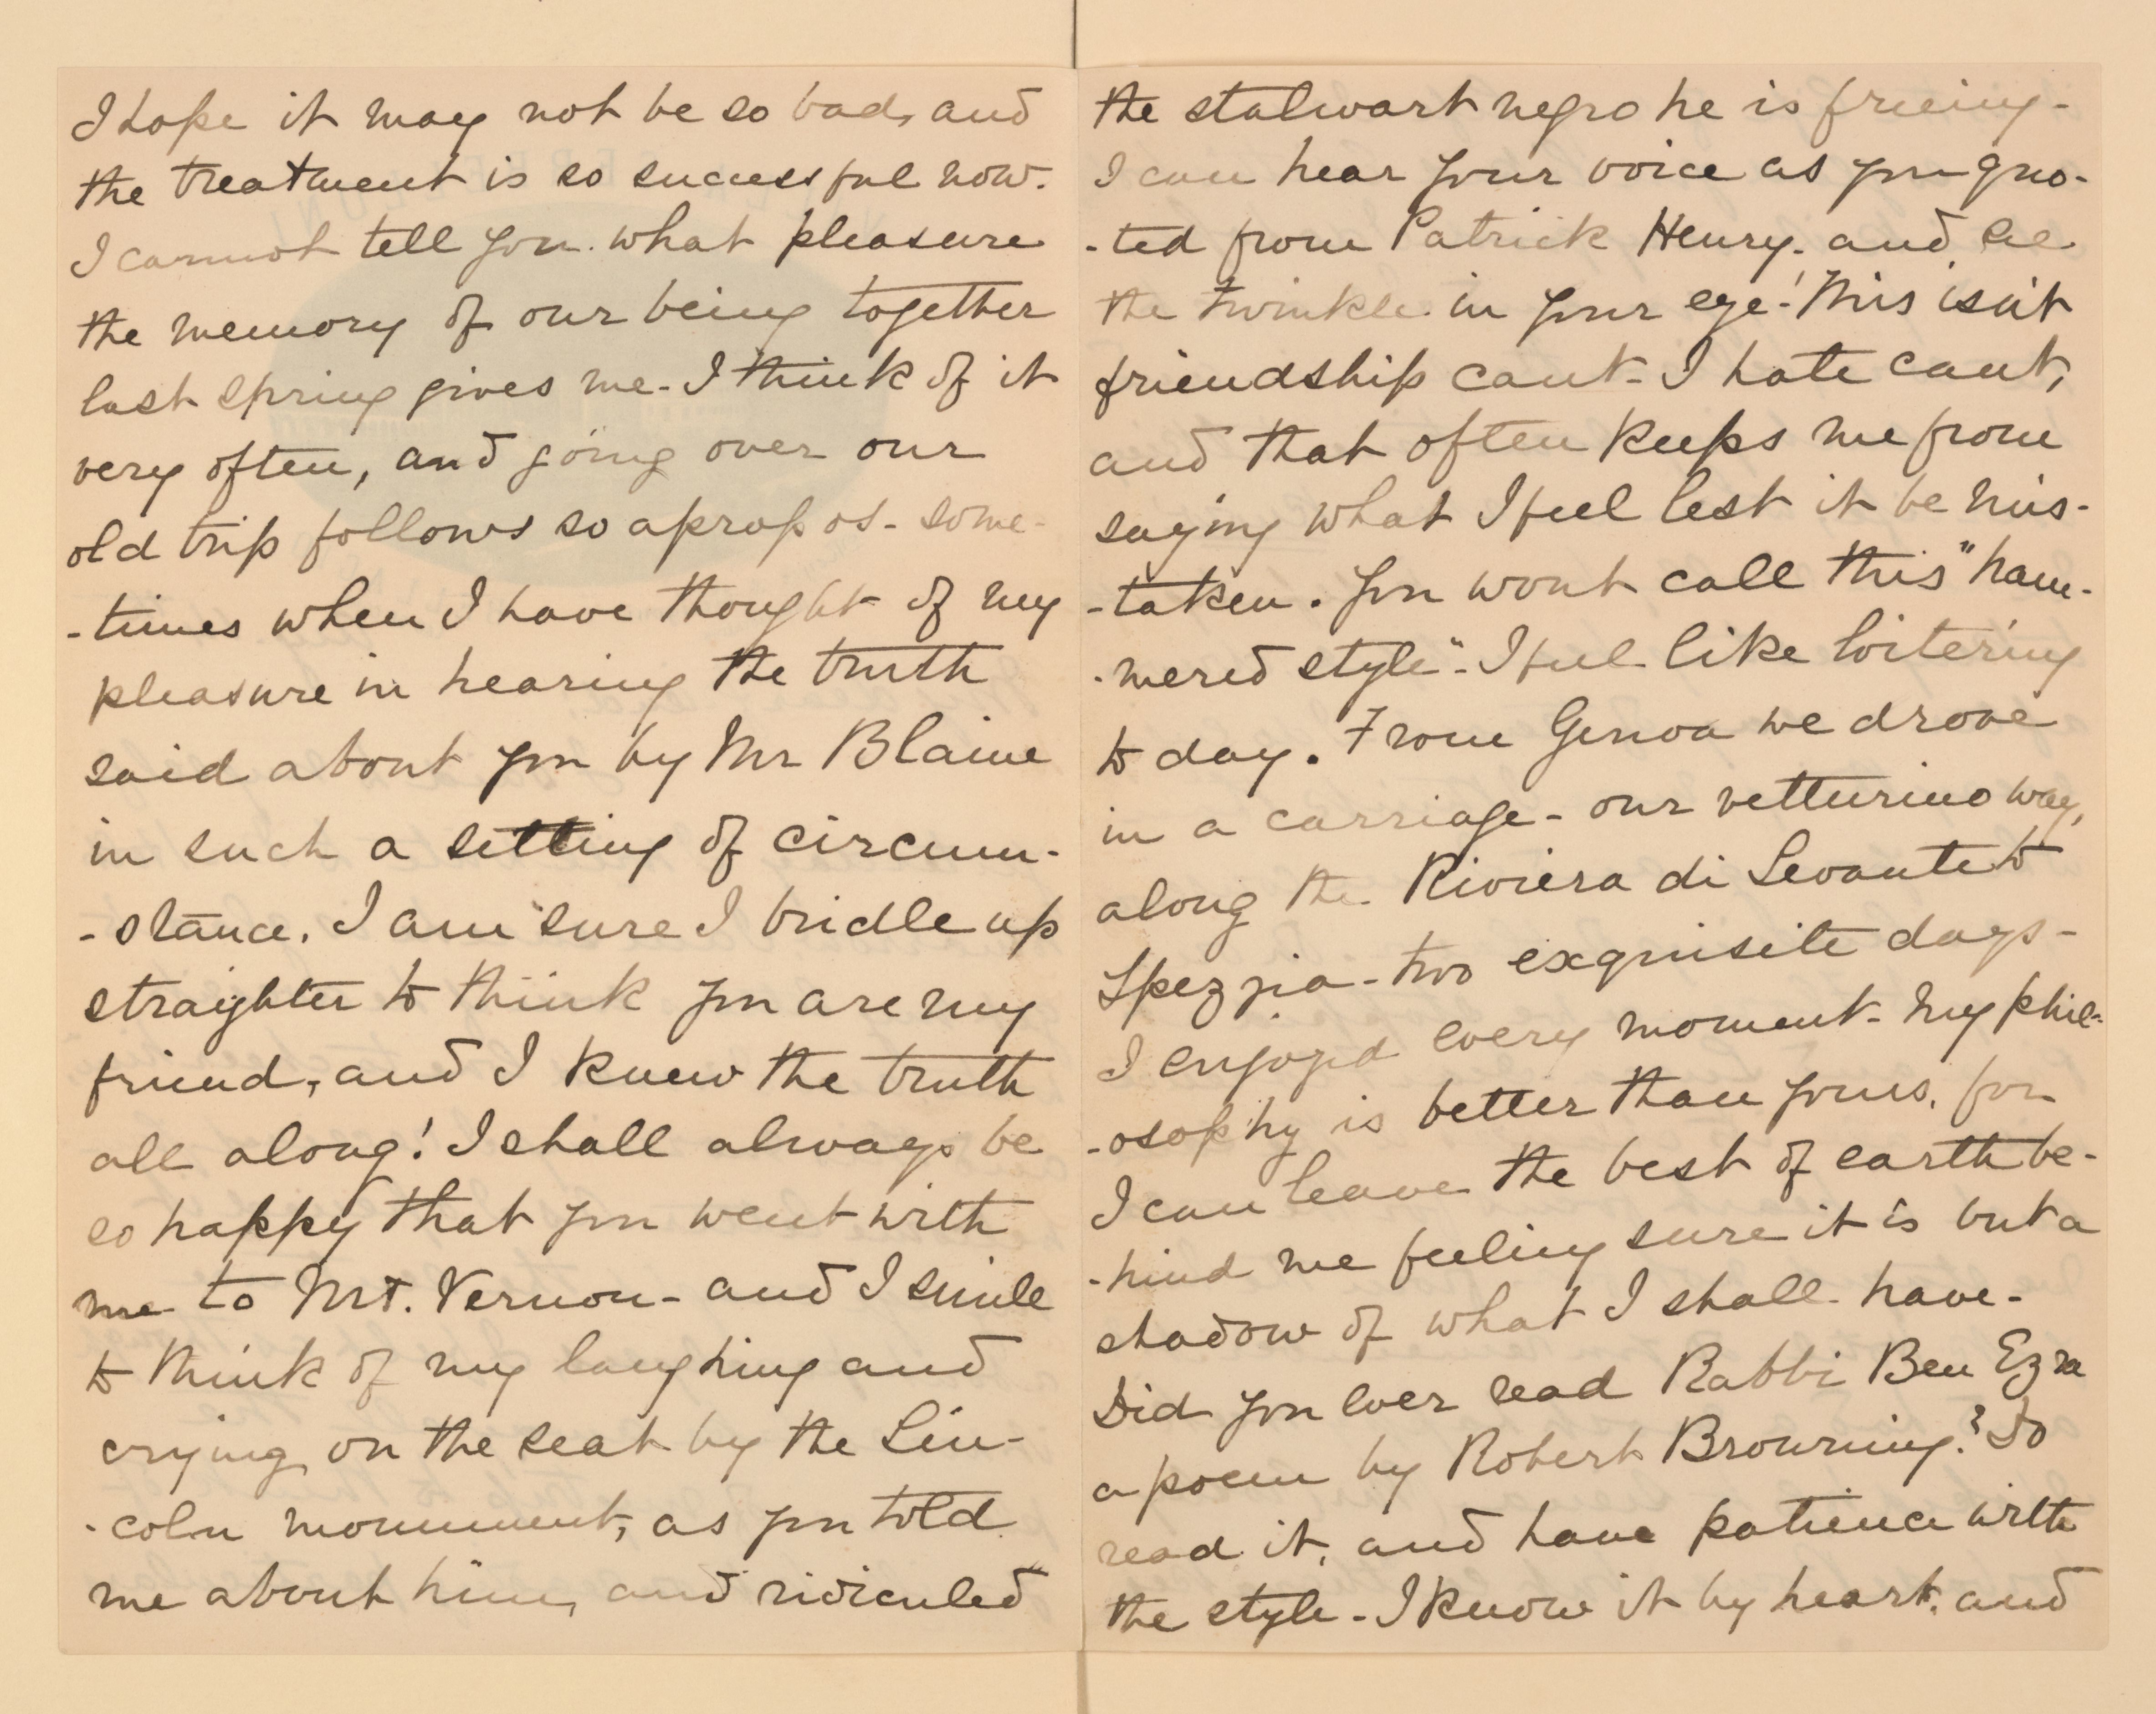 I hope it may not be so bad, and
the treatment is so successful now.
I cannot tell you what pleasure
the memory of our being together
last spring gives me - I think of it
very often, and going over our
old trip follows so apropos - some-
-times when I have thought of my
pleasure in hearing the truth
said about you by Mr Blaine
in such a setting of circum-
-stance. I am sure I bridle up
straighter to think you are my
friend, and I knew the truth
all along! I shall always be
so happy that you went with
me to Mt. Vernon - and I smile
to think of my laughing and
crying on the seat by the Lin-
-coln monument, as you told
me about him, and ridiculed
the stalwart negro he is freeing -
I can hear your voice as you quo-
-ted from Patrick Henry. and see
the twinkle in your eye! This isn't
friendship cant - I hate cant,
and that often keeps me from
saying what I feel lest it be mis-
-taken. You wont call this "ham-
-mered style" - I feel like loitering
to day. From Genoa we drove
in a carriage - our vetturino way,
along the Riviera di Levante to
Spezzia - two exquisite days -
I enjoyed every moment - My phil-
-osophy is better than yours, for
I can leave the best of earth be-
-hind me feeling sure it is but a
shadow of what I shall have -
Did you ever read Rabbi Ben Ezra
a poem by Robert Browning? Do
read it, and have patience with
the style - I know it by heart, and